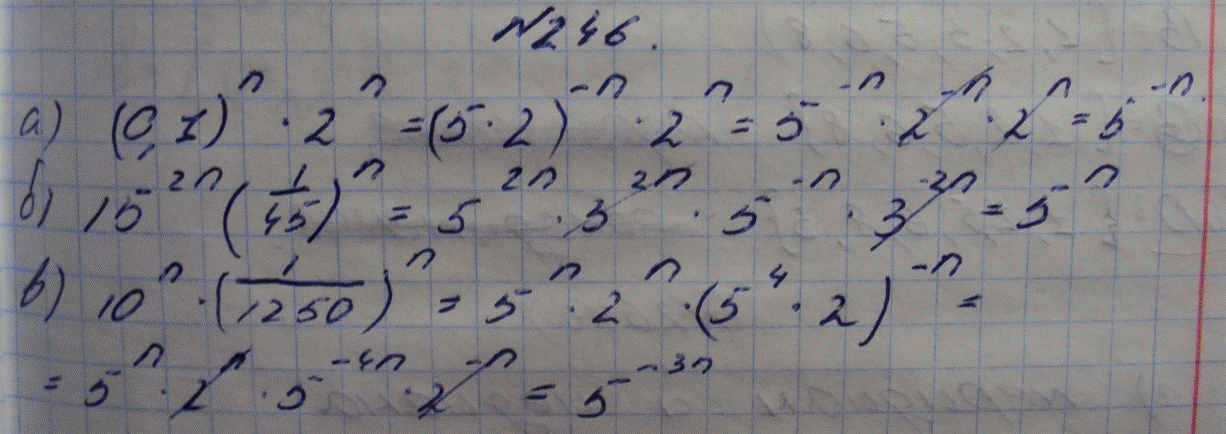 №246.
а) (0,1)^n · 2^n = (5 · 2)^{-n} · 2^n = 5^{-n} · 2^{-n} · 2^n = 5^{-n}.
б) 15^{2n} (1/45)^n = 5^{2n} · 3^{2n} · 5^{-n} · 3^{-2n} = 5^n
в) 10^n · (1/1250)^n = 5^n · 2^n · (5^4 · 2)^{-n} =
= 5^n · 2^n · 5^{-4n} · 2^{-n} = 5^{-3n}